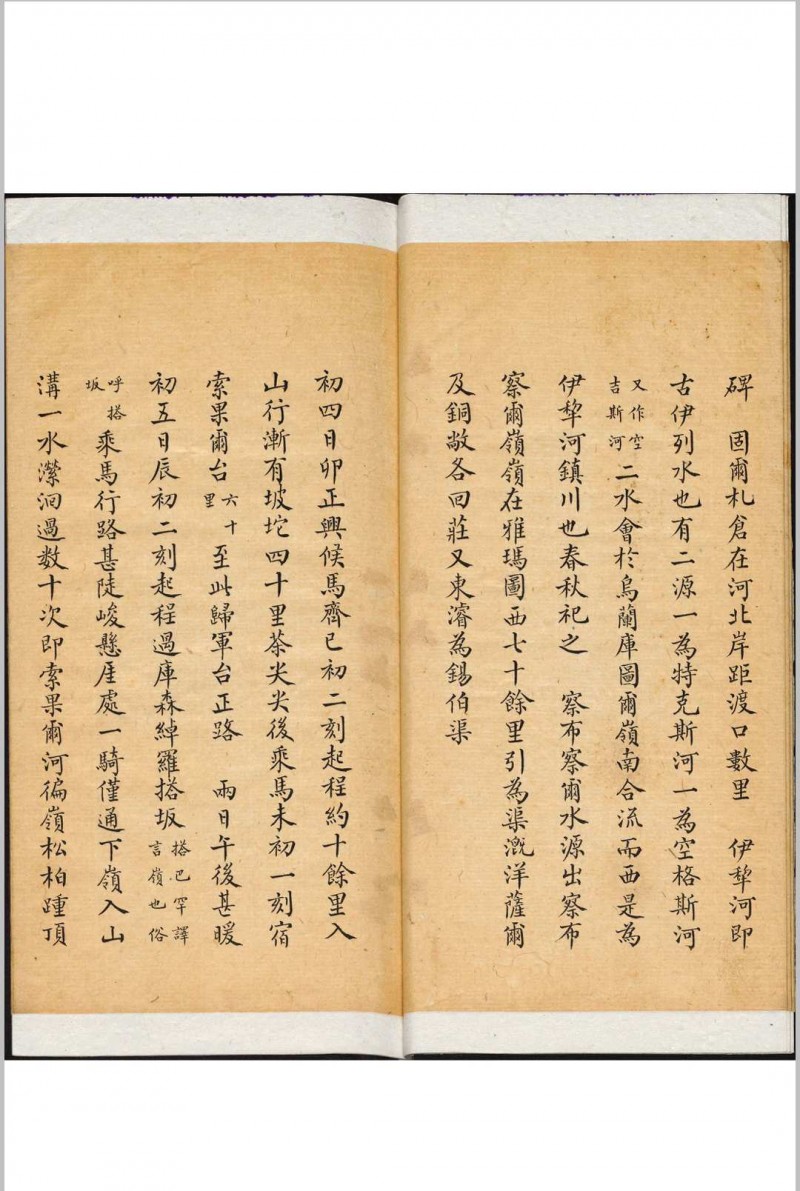 碑　固爾札倉在河北岸距渡口數里　伊犂河即
古伊列水也有二源一為特克斯河一為空格斯河
又作空吉斯河二水會於烏蘭庫圖爾嶺南合流而西是為
伊犂河鎮川也春秋祀之　察布察爾水源出察布
察爾嶺嶺在雅瑪圖西七十餘里引為渠溉洋薩爾
及銅敞各回莊又東濬為錫伯渠
初四日卯正興候馬齊已初二刻起程約十餘里入
山行漸有坡坨四十里茶尖尖後乘馬未初一刻宿
索果爾台六十里至此歸軍台正路　兩日午後甚暖
初五日辰初二刻起程過庫森綽羅搭坂搭巴罕譯言嶺也俗
呼搭坂乘馬行路甚陡峻懸厓處一騎僅通下嶺入山
溝一水瀠洄過数十次即索果爾河徧嶺松柏踵頂